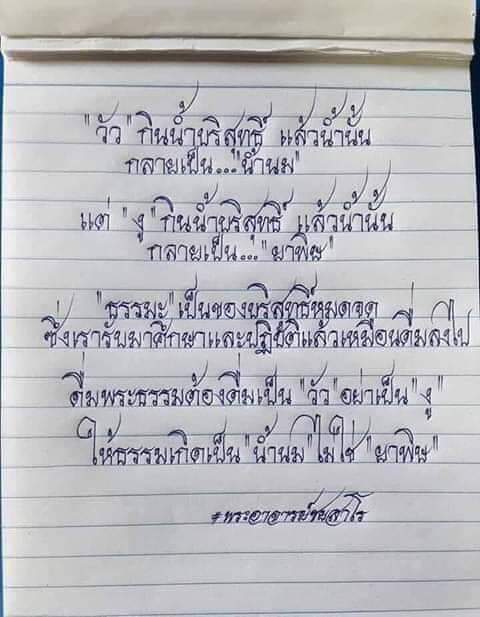 "วัว" กินน้ำบริสุทธิ์ แล้วน้ำนั้น
กลายเป็น..."น้ำนม"
แต่ "งู" กินน้ำบริสุทธิ์ แล้วน้ำนั้น
กลายเป็น..."ยาพิษ"
"ธรรมะ" เป็นของบริสุทธิ์หมดจด
ซึ่งเรารับมาศึกษาและปฏิบัติแล้วเหมือนดื่มลงไป
ดื่มพระธรรมต้องดื่มเป็น "วัว" อย่าเป็น "งู"
ให้ธรรมเกิดเป็น "น้ำนม" ไม่ใช่ "ยาพิษ"
#พระอาจารย์ชยสาโร